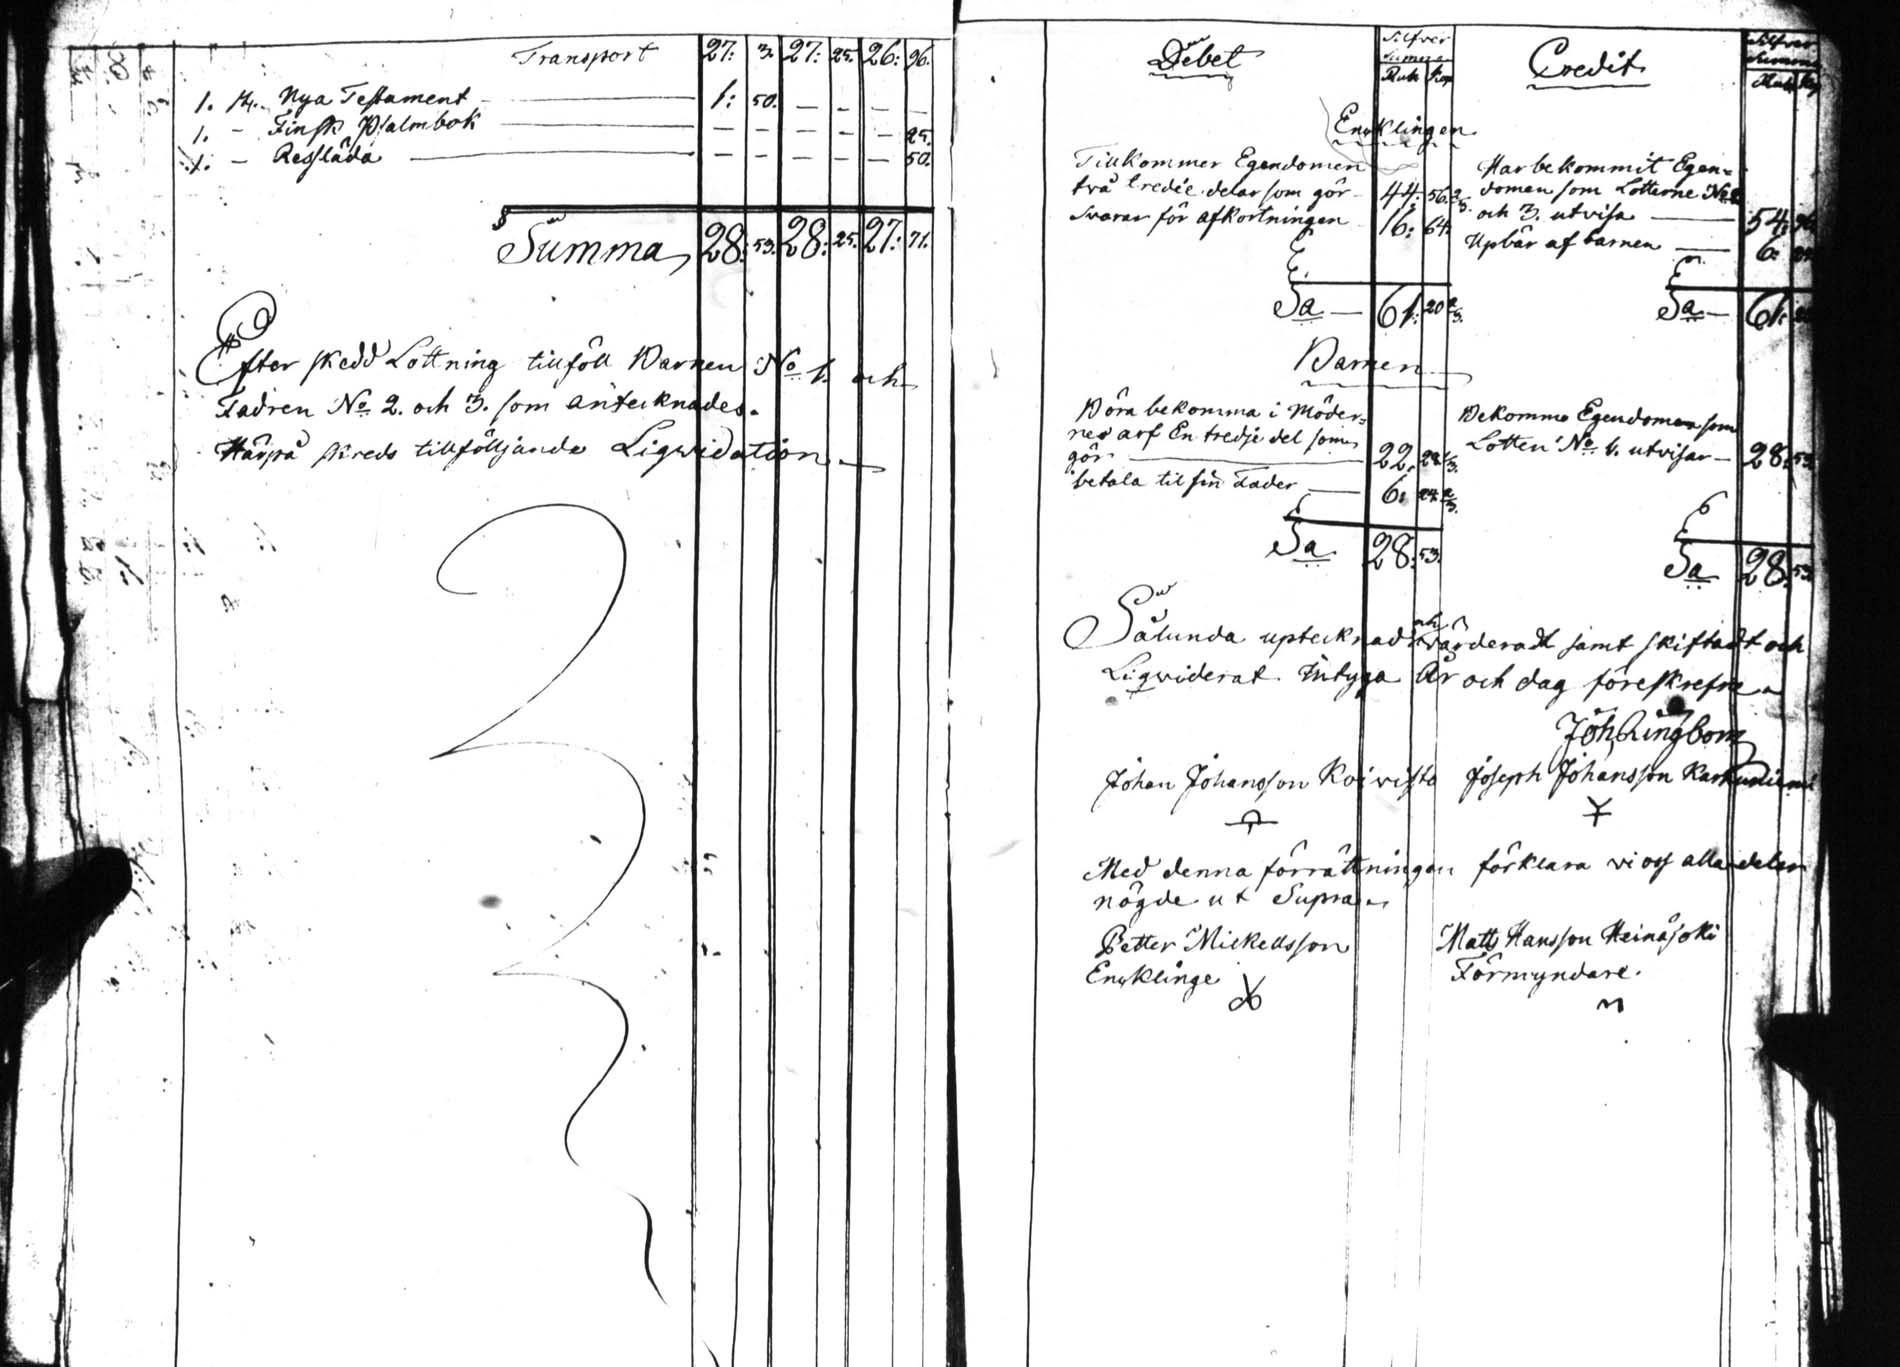 Transport 27: 3. 27: 25. 26: 96.
1. st. Nya Testament 1: 50. — — — —
1. — Finsk Psalmbok — — — — — 25.
1. — Resslåda — — — — — 50.
Summa 28: 53. 28: 25. 27: 71.
Efter skedd Lottning tillföll Barnen No 1. och
Fadren No 2. och 3. som antecknades.
Härpå skreds tillföljande Liqwidation
Debet
Silfver
Summa
Rub Kop
Credit
Silfver
Summa
Rub Kop
Encklingen
Tillkommer Egendomen
två tredie delar som gör 44: 56. 2/3.
Svarar för afkortningen 16: 64.
Sa 61: 20 2/3.
Har bekommit Egen=
domen som Lotterne No 2
och 3. utvisa 54: 96
Upbär af barnen 6:
Sa 61:
Barnen
Böra bekomma i Möder=
nes arf En tredje del som
gör 22. 28 1/3.
betala til sin Fader 6: 24 2/3.
Sa 28: 53.
Bekomma Egendomen som
Lotten No 1. utvisar 28: 53
Sa 28: 53
Sålunda uptecknadt och värderadt samt skiftadt och
Liqwiderat intyga År och dag föreskrefne
Joh Ringbom
Johan Johansson Koivisto Joseph Johansson
Med denna förrättningen förklara vi oss alla delar
nögde ut Supra
Petter Mickellsson
Encklinge
Matts Hansson Heinåjoki
Förmyndare.